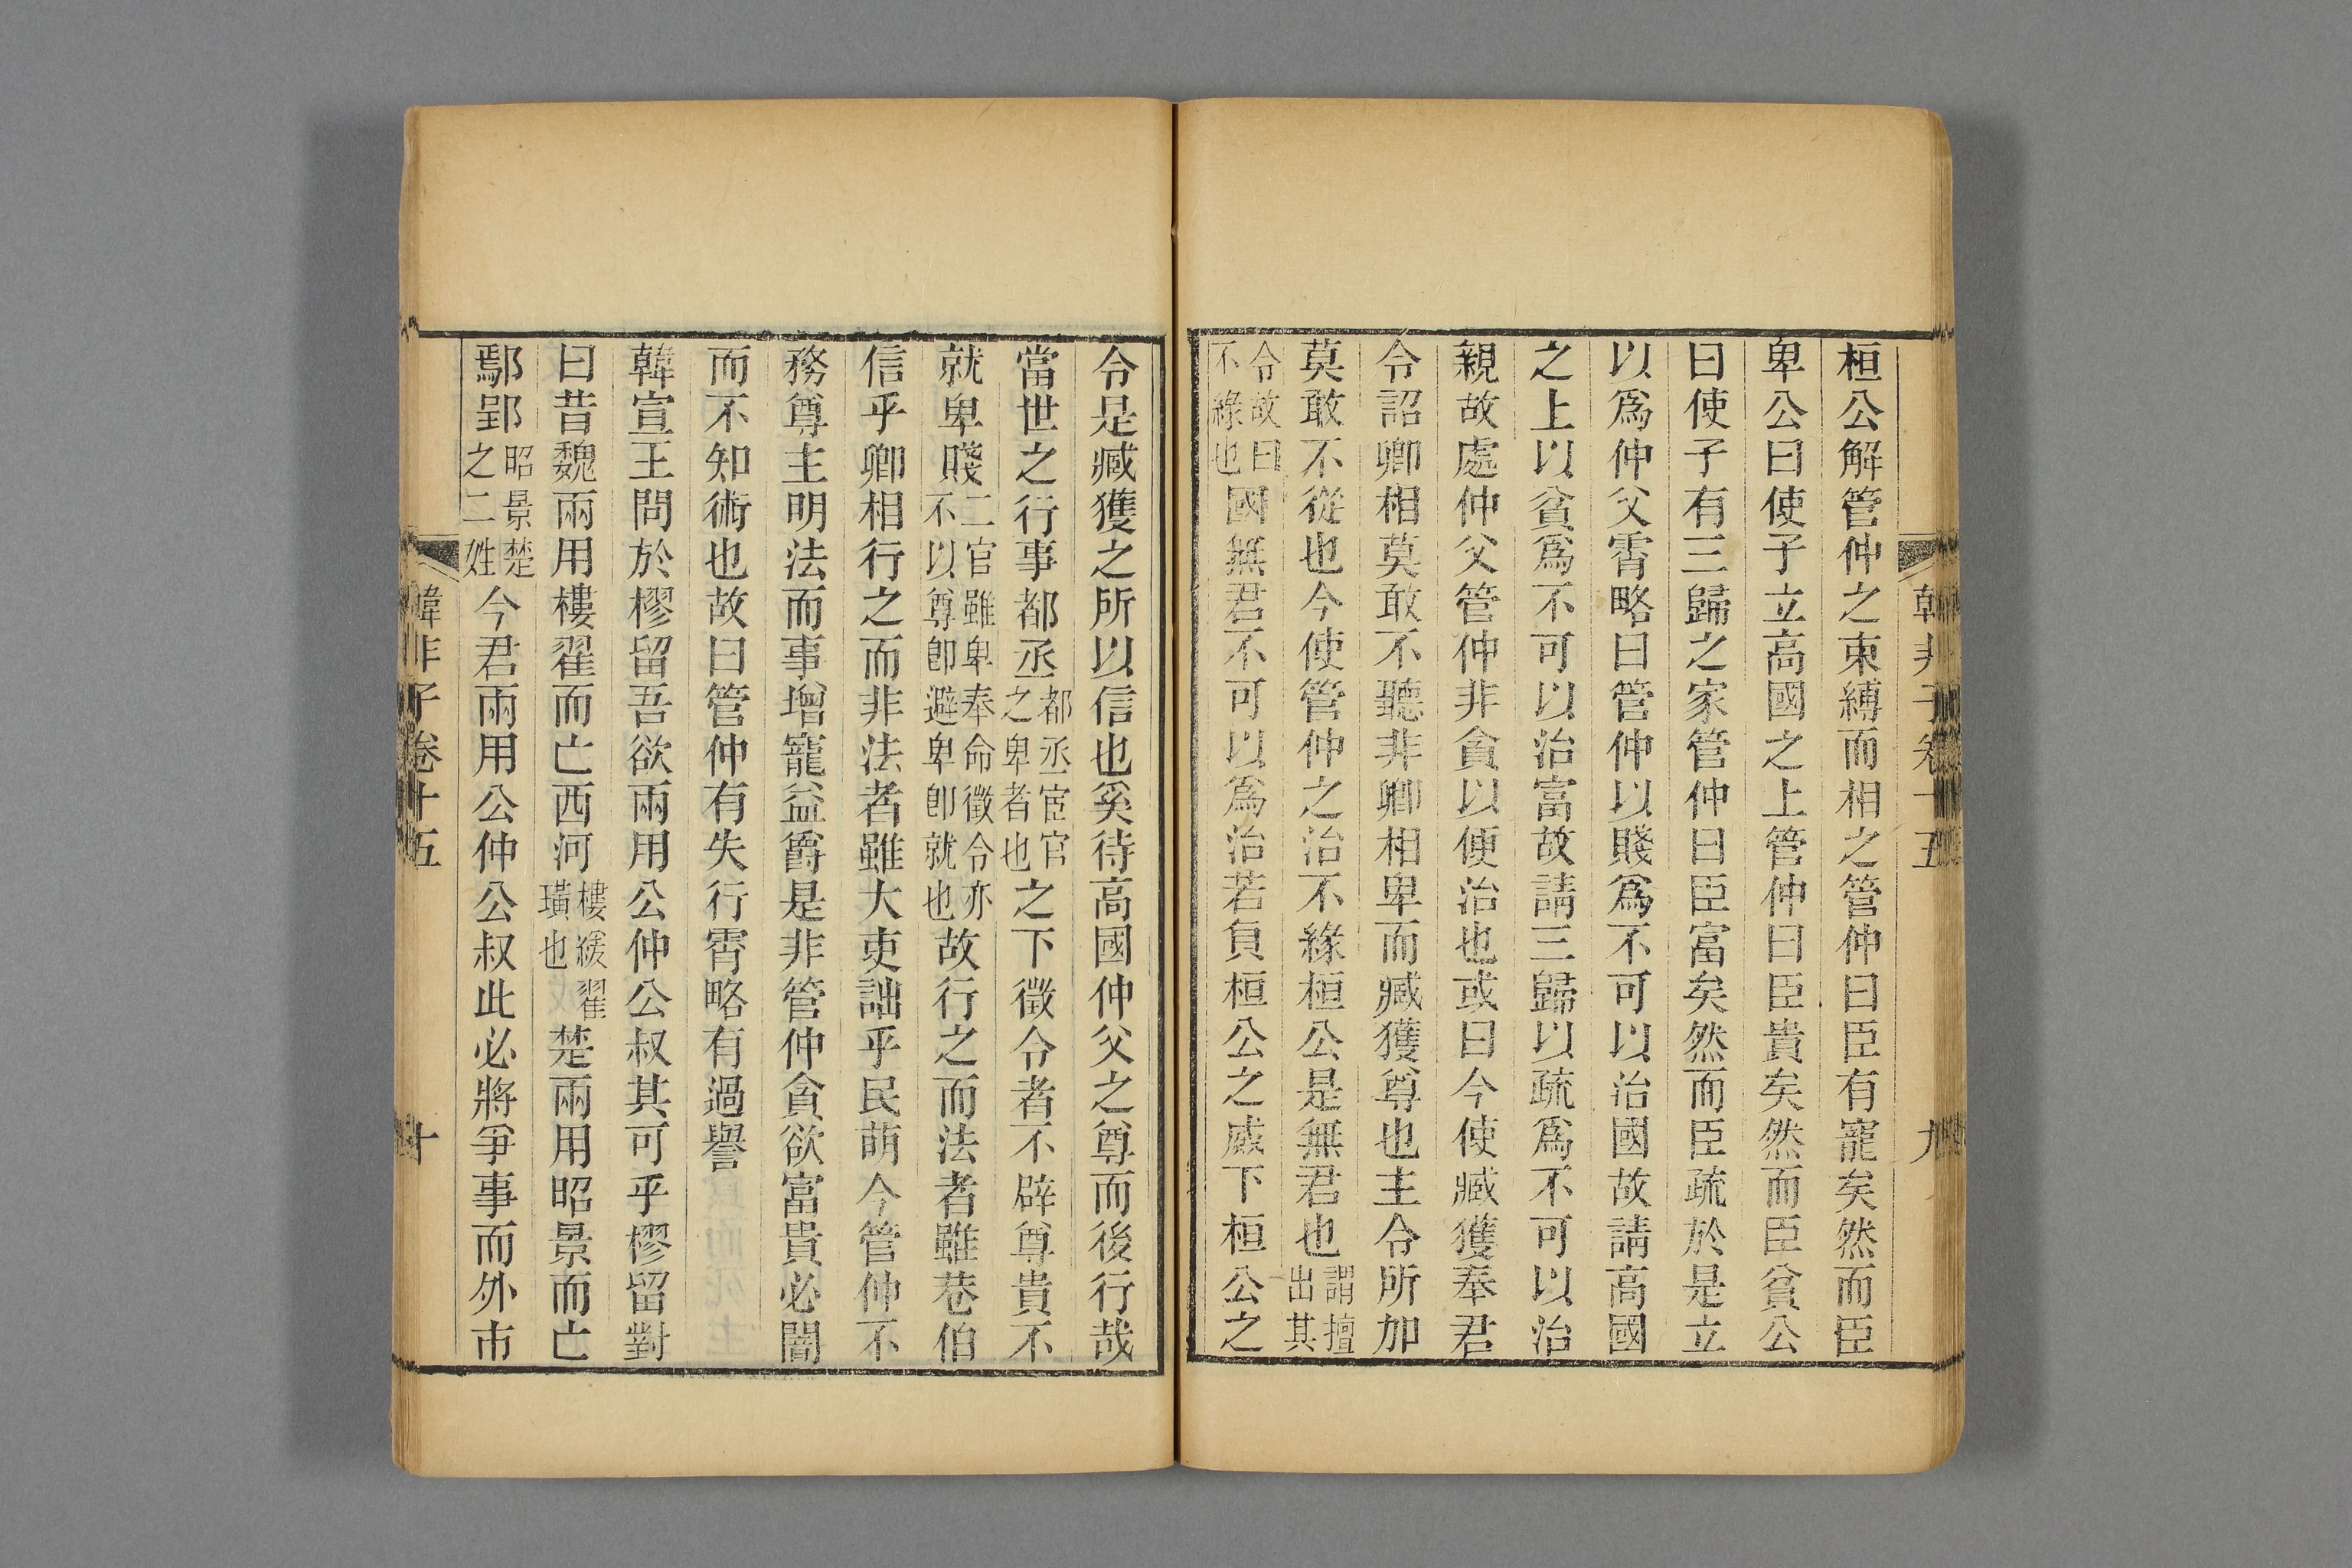 韓非子卷十五 九
桓公解管仲之束縛而相之管仲曰臣有寵矣然而臣
卑公曰使子立高國之上管仲曰臣貴矣然而臣貧公
曰使子有三歸之家管仲曰臣富矣然而臣疏於是立
以爲仲父霄略曰管仲以賤爲不可以治國故請高國
之上以貧爲不可以治富故請三歸以疏爲不可以治
親故處仲父管仲非貪以便治也或曰今使臧獲奉君
令詔卿相莫敢不聽非卿相卑而臧獲尊也主令所加
莫敢不從也今使管仲之治不緣桓公是無君也謂擅出其
令故曰不緣也國無君不可以爲治若負桓公之威下桓公之
令是臧獲之所以信也奚待高國仲父之尊而後行哉
當世之行事都丞都丞宦官之卑者也之下徵令者不辟尊貴不
就卑賤二官雖卑奉命徵令亦不以尊卽避卑卽就也故行之而法者雖巷伯
信乎卿相行之而非法者雖大吏詘乎民萌今管仲不
務尊主明法而事增寵益爵是非管仲貪欲富貴必闇
而不知術也故曰管仲有失行霄略有過譽
韓宣王問於樛留吾欲兩用公仲公叔其可乎樛留對
曰昔魏兩用樓翟而亡西河樓緩翟璜也楚兩用昭景而亡
鄢郢昭景楚之二姓今君兩用公仲公叔此必將爭事而外市
韓非子卷十五 十